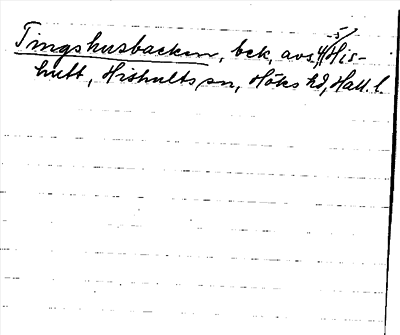 Tingshusbacken, bck, avs, 4/5 His-
hult, Hishults sn, Höks hd, Hall. l.